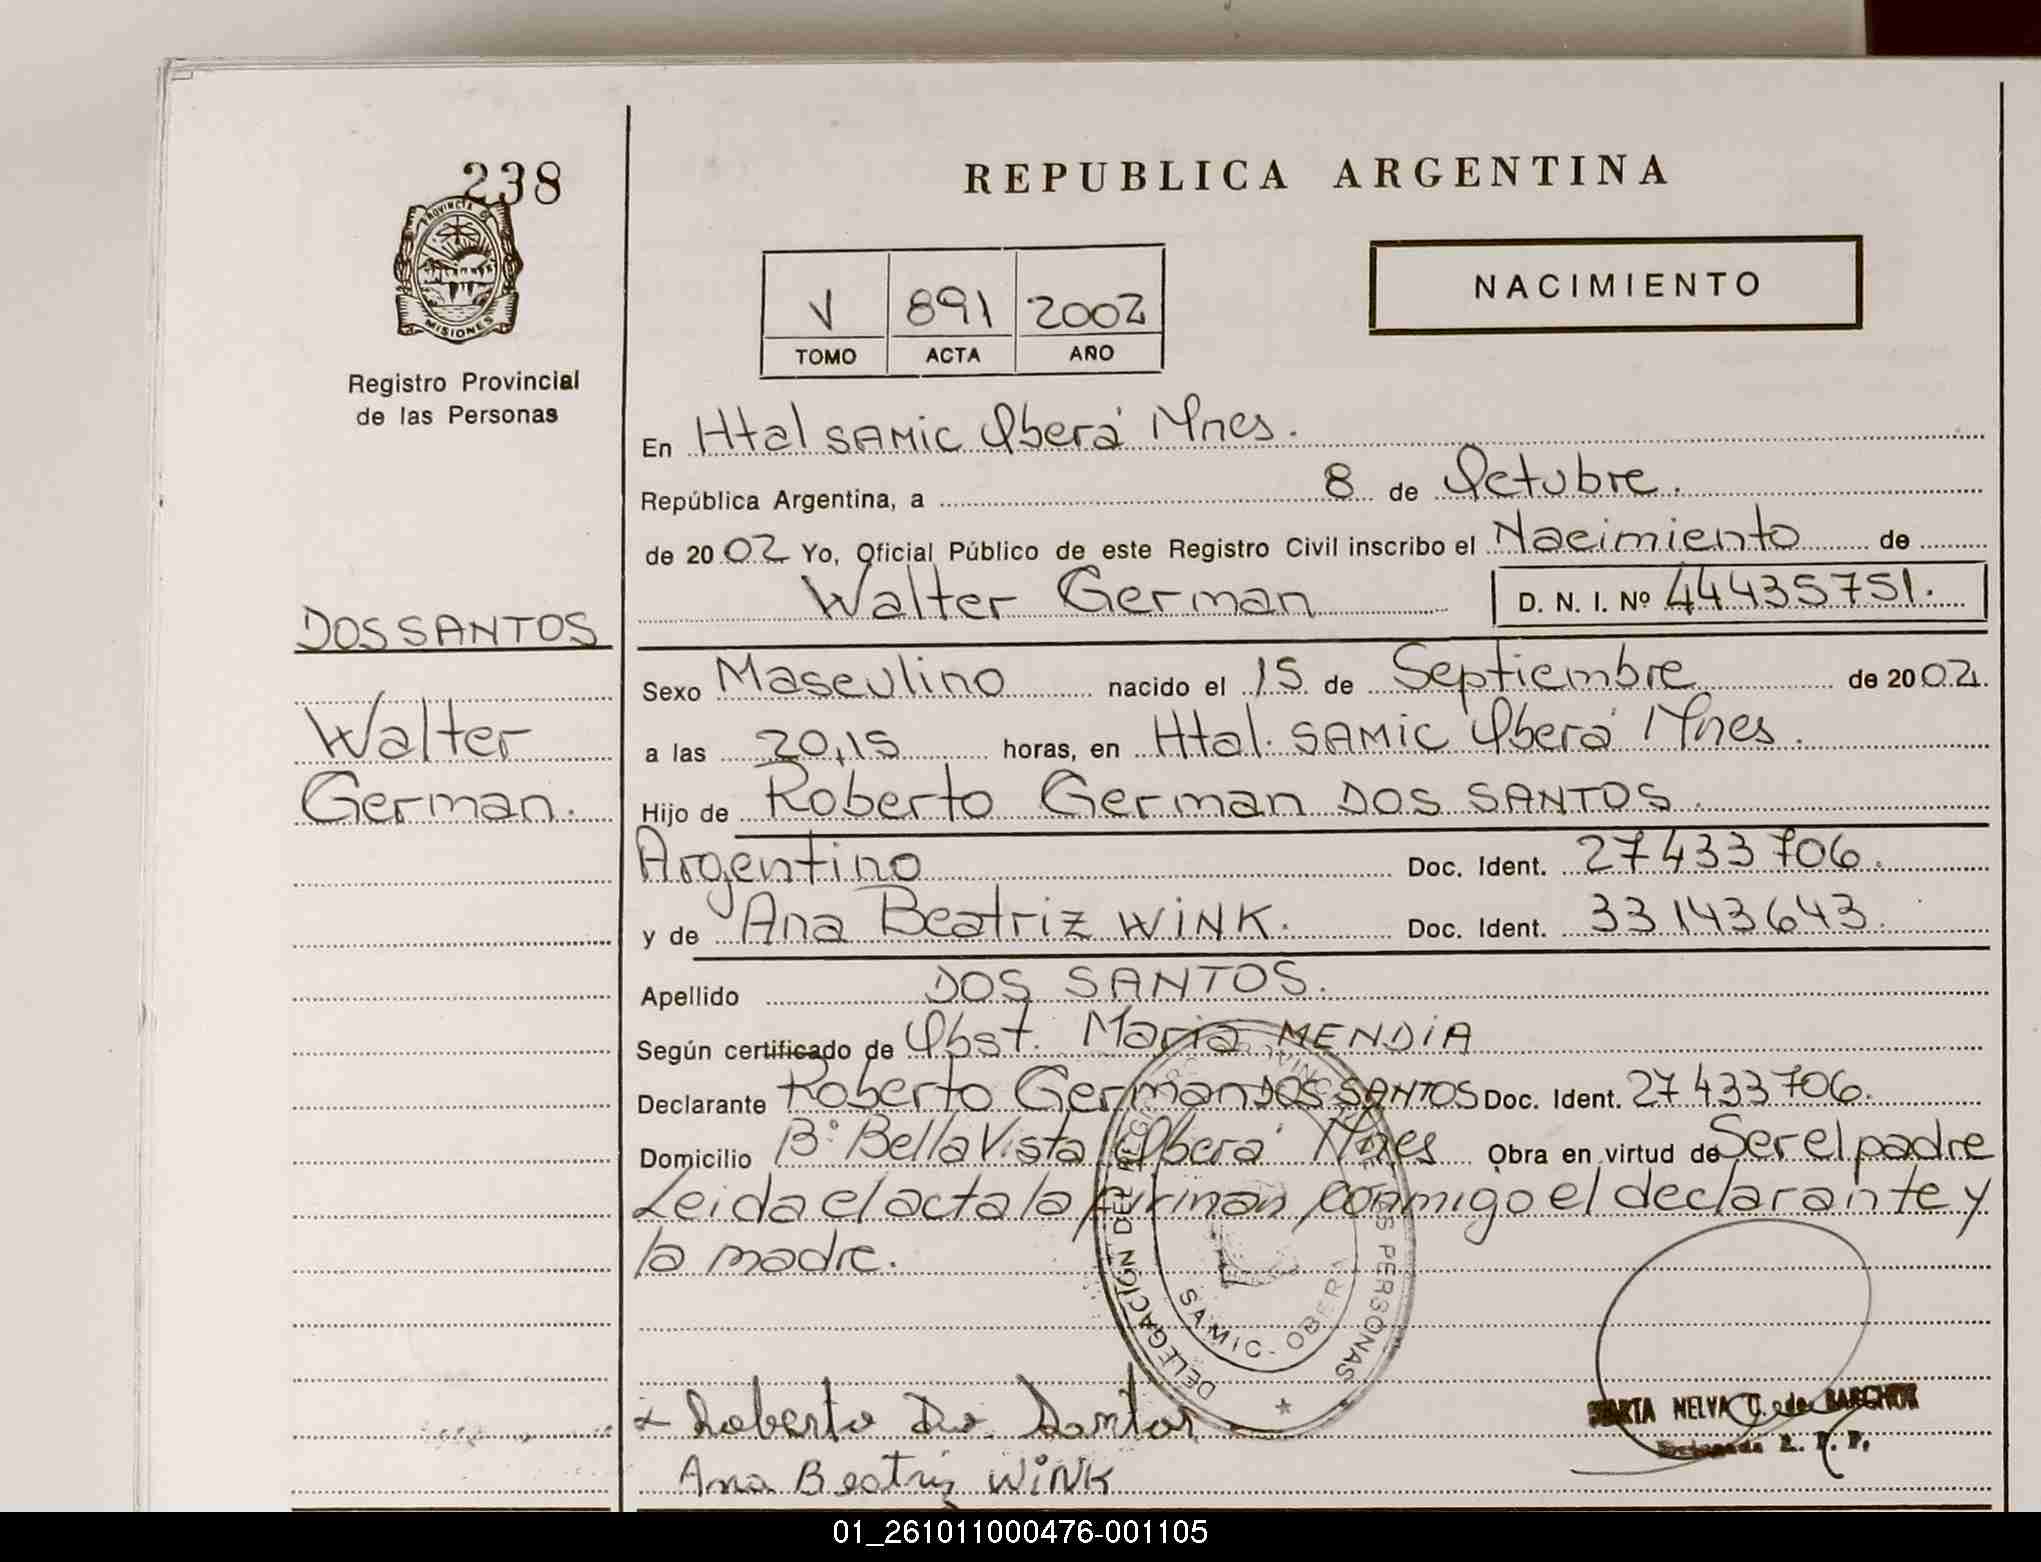 238
PROVINCIA DE
MISIONES
Registro Provincial
de las Personas
DOS SANTOS
Walter
German.
REPUBLICA ARGENTINA
NACIMIENTO
V 891 2002
TOMO ACTA AÑO
En Htal SAMIC Oberá Mnes.
República Argentina, a 8 de Octubre.
de 2002 Yo, Oficial Público de este Registro Civil inscribo el Nacimiento de
Walter German D. N. I. Nº 44435751.
Sexo Masculino nacido el 15 de Septiembre de 2002.
a las 20,15 horas, en Htal. SAMIC Oberá Mnes.
Hijo de Roberto German DOS SANTOS.
Argentino Doc. Ident. 27433706.
y de Ana Beatriz WINK. Doc. Ident. 33143643.
Apellido DOS SANTOS.
Según certificado de Obst. Maria MENDIA
Declarante Roberto German DOS SANTOS Doc. Ident. 27433706.
Domicilio Bº Bella Vista Oberá Mnes Obra en virtud de Ser el padre
Leida el acta la firman conmigo el declarante y
la madre.
DELEGACIÓN DEL REGISTRO PROVINCIAL DE LAS PERSONAS
SAMIC - OBERA
Roberto Dos Santos
NELVA
Ana Beatriz WINK
01_261011000476-001105